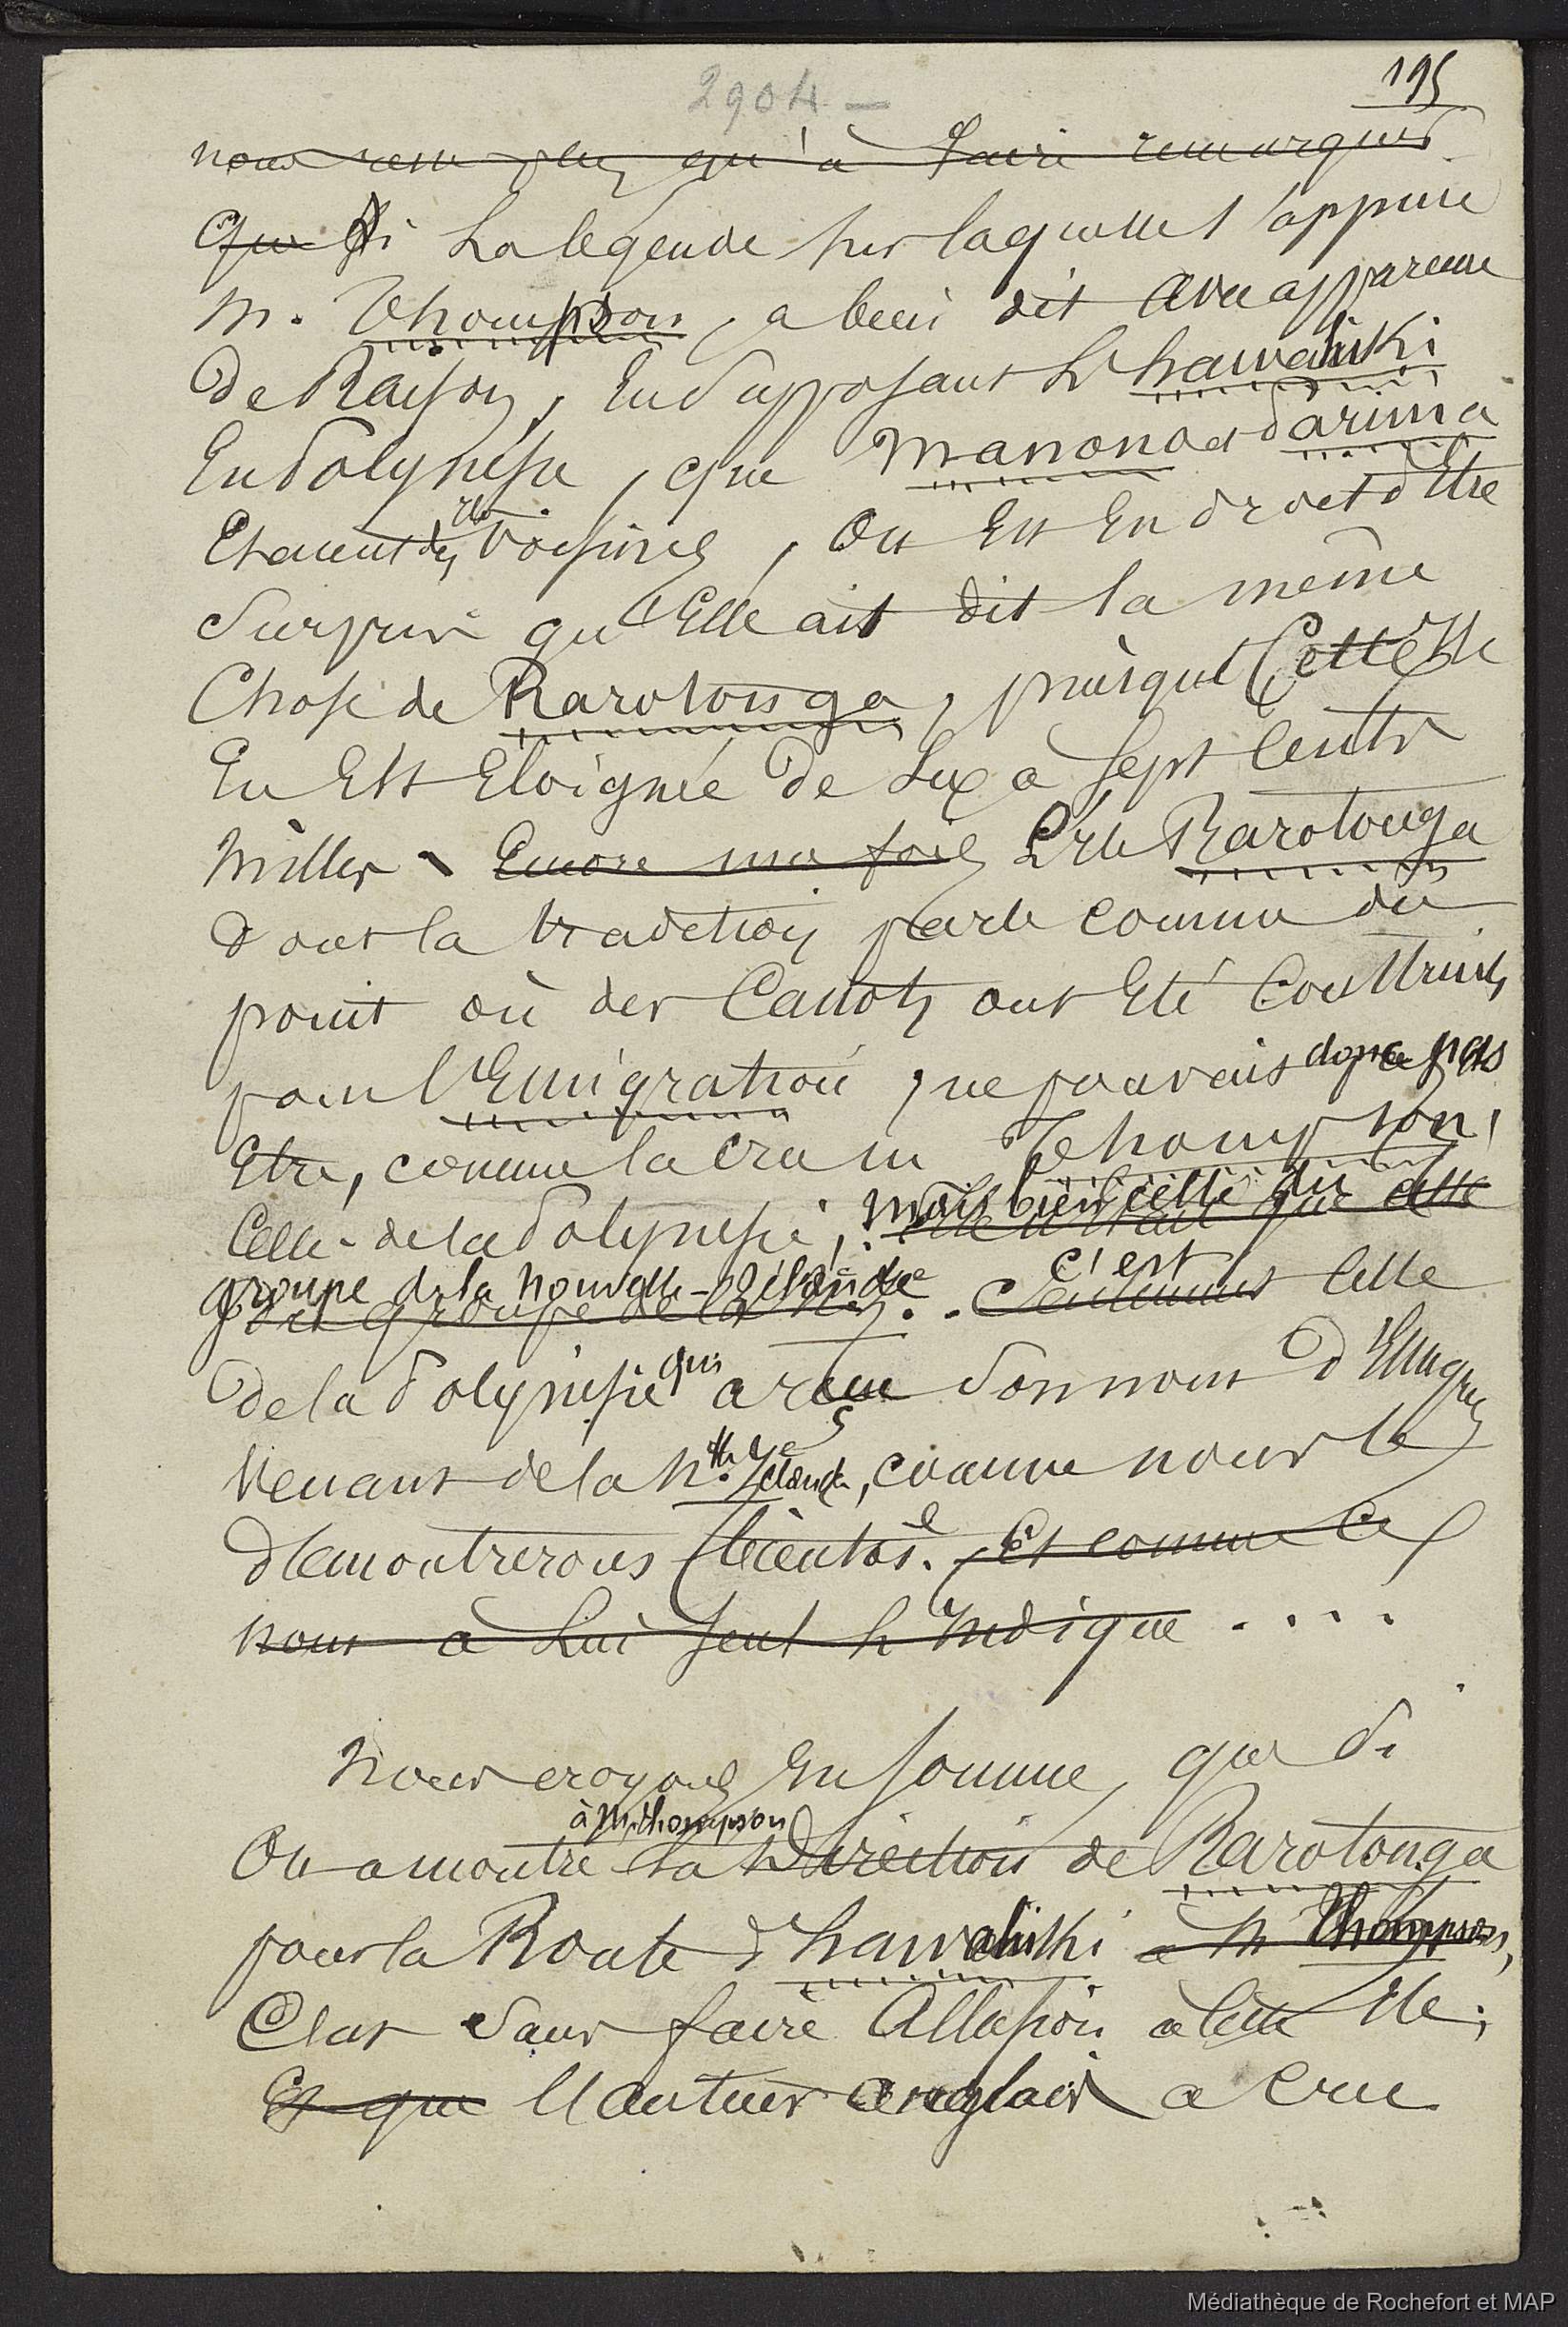 195
2904 –
nous reste plus qu'à faire remarquer
que Si la légende sur laquelle s'appuie
M. Thompson, a bien dit avec apparence
de Raison, en supposant l'hawahiki
En Polynésie, que Manono et Sarima
Etaient des îles voisines, on est en droit d'être
Surpris qu'Elle ait dit la même
Chose de Rarotonga, puisque Cette île
En Est Eloignée de Six à Sept Cents
Milles. Encore une fois L'île Rarotonga
dont la tradition parle comme du
point où des Canots ont été Construits
pour l'Emigration, ne pouvait donc pas
Etre, comme l'a cru M Thompson,
Celle de la Polynésie; mais bien celle du
groupe de la Nouvelle-Zélande. c'est celle
Seulement
De la Polynésie qui a reçu son nom d'Emigrés
Venant de la Nlle Zélande, comme nous le
démontrerons bientôt. Et comme ce
nom à lui seul l'indique ....
Nous croyons En somme, que si
à M. Thompson
On a montré la Direction de Rarotonga
pour la Route d'hawahiki à M Thompson,
C'est sans faire Allusion à cette île;
Et que l'auteur anglais a cru
Médiathèque de Rochefort et MAP